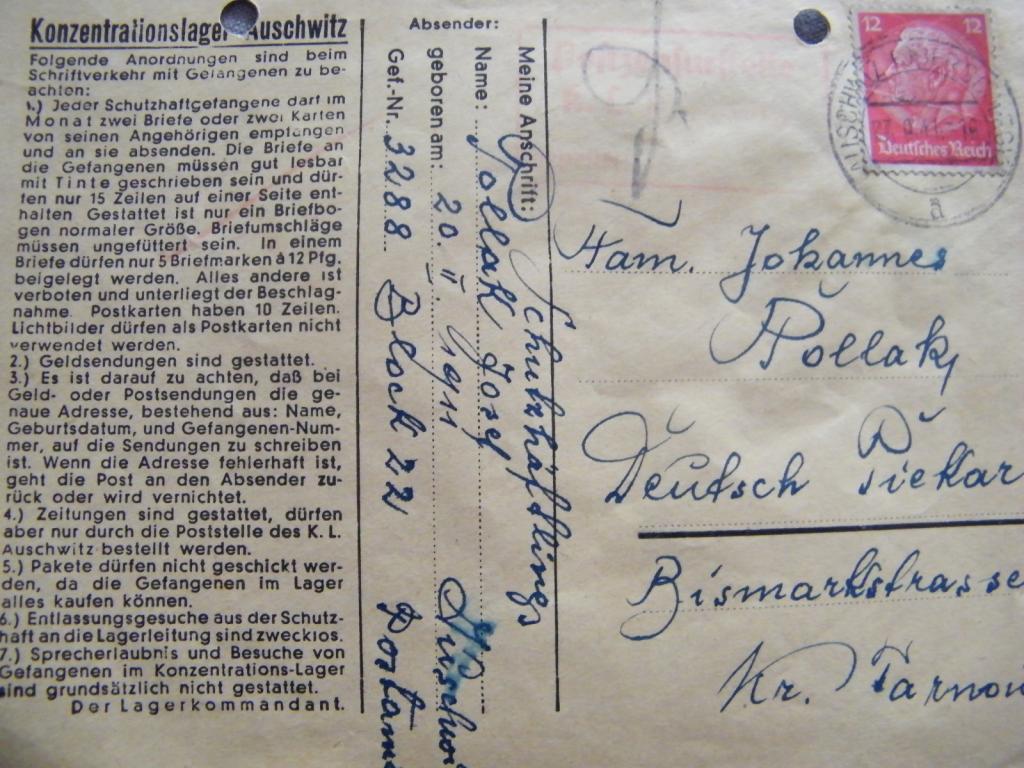 Konzentrationslager Auschwitz
Folgende Anordnungen sind beim
Schriftverkehr mit Gefangenen zu be-
achten:
1.) Jeder Schutzhaftgefangene darf im
Monat zwei Briefe oder zwei Karten
von seinen Angehörigen empfangen
und an sie absenden. Die Briefe an
die Gefangenen müssen gut lesbar
mit Tinte geschrieben sein und dür-
fen nur 15 Zeilen auf einer Seite ent-
halten Gestattet ist nur ein Briefbo-
gen normaler Größe. Briefumschläge
müssen ungefüttert sein. In einem
Briefe dürfen nur 5 Briefmarken à 12 Pfg.
beigelegt werden. Alles andere ist
verboten und unterliegt der Beschlag-
nahme. Postkarten haben 10 Zeilen.
Lichtbilder dürfen als Postkarten nicht
verwendet werden.
2.) Geldsendungen sind gestattet.
3.) Es ist darauf zu achten, daß bei
Geld- oder Postsendungen die ge-
naue Adresse, bestehend aus: Name,
Geburtsdatum, und Gefangenen-Num-
mer, auf die Sendungen zu schreiben
ist. Wenn die Adresse fehlerhaft ist,
geht die Post an den Absender zu-
rück oder wird vernichtet.
4.) Zeitungen sind gestattet, dürfen
aber nur durch die Poststelle des K. L.
Auschwitz bestellt werden.
5.) Pakete dürfen nicht geschickt wer-
den, da die Gefangenen im Lager
alles kaufen können.
6.) Entlassungsgesuche aus der Schutz-
haft an die Lagerleitung sind zwecklos.
7.) Sprecherlaubnis und Besuche von
Gefangenen im Konzentrations-Lager
sind grundsätzlich nicht gestattet.
Der Lagerkommandant.
Absender:
Meine Anschrift: Schutzhäftlings
Name: Pollak Josef
geboren am: 20. II. 1911 Auschwi
Gef.-Nr. 3288 Block 22 Postam
12 12
Deutsches Reich
a
Fam. Johannes
Pollak,
Deutsch Piekar
Bismarkstrasse
Kr. Tarnow